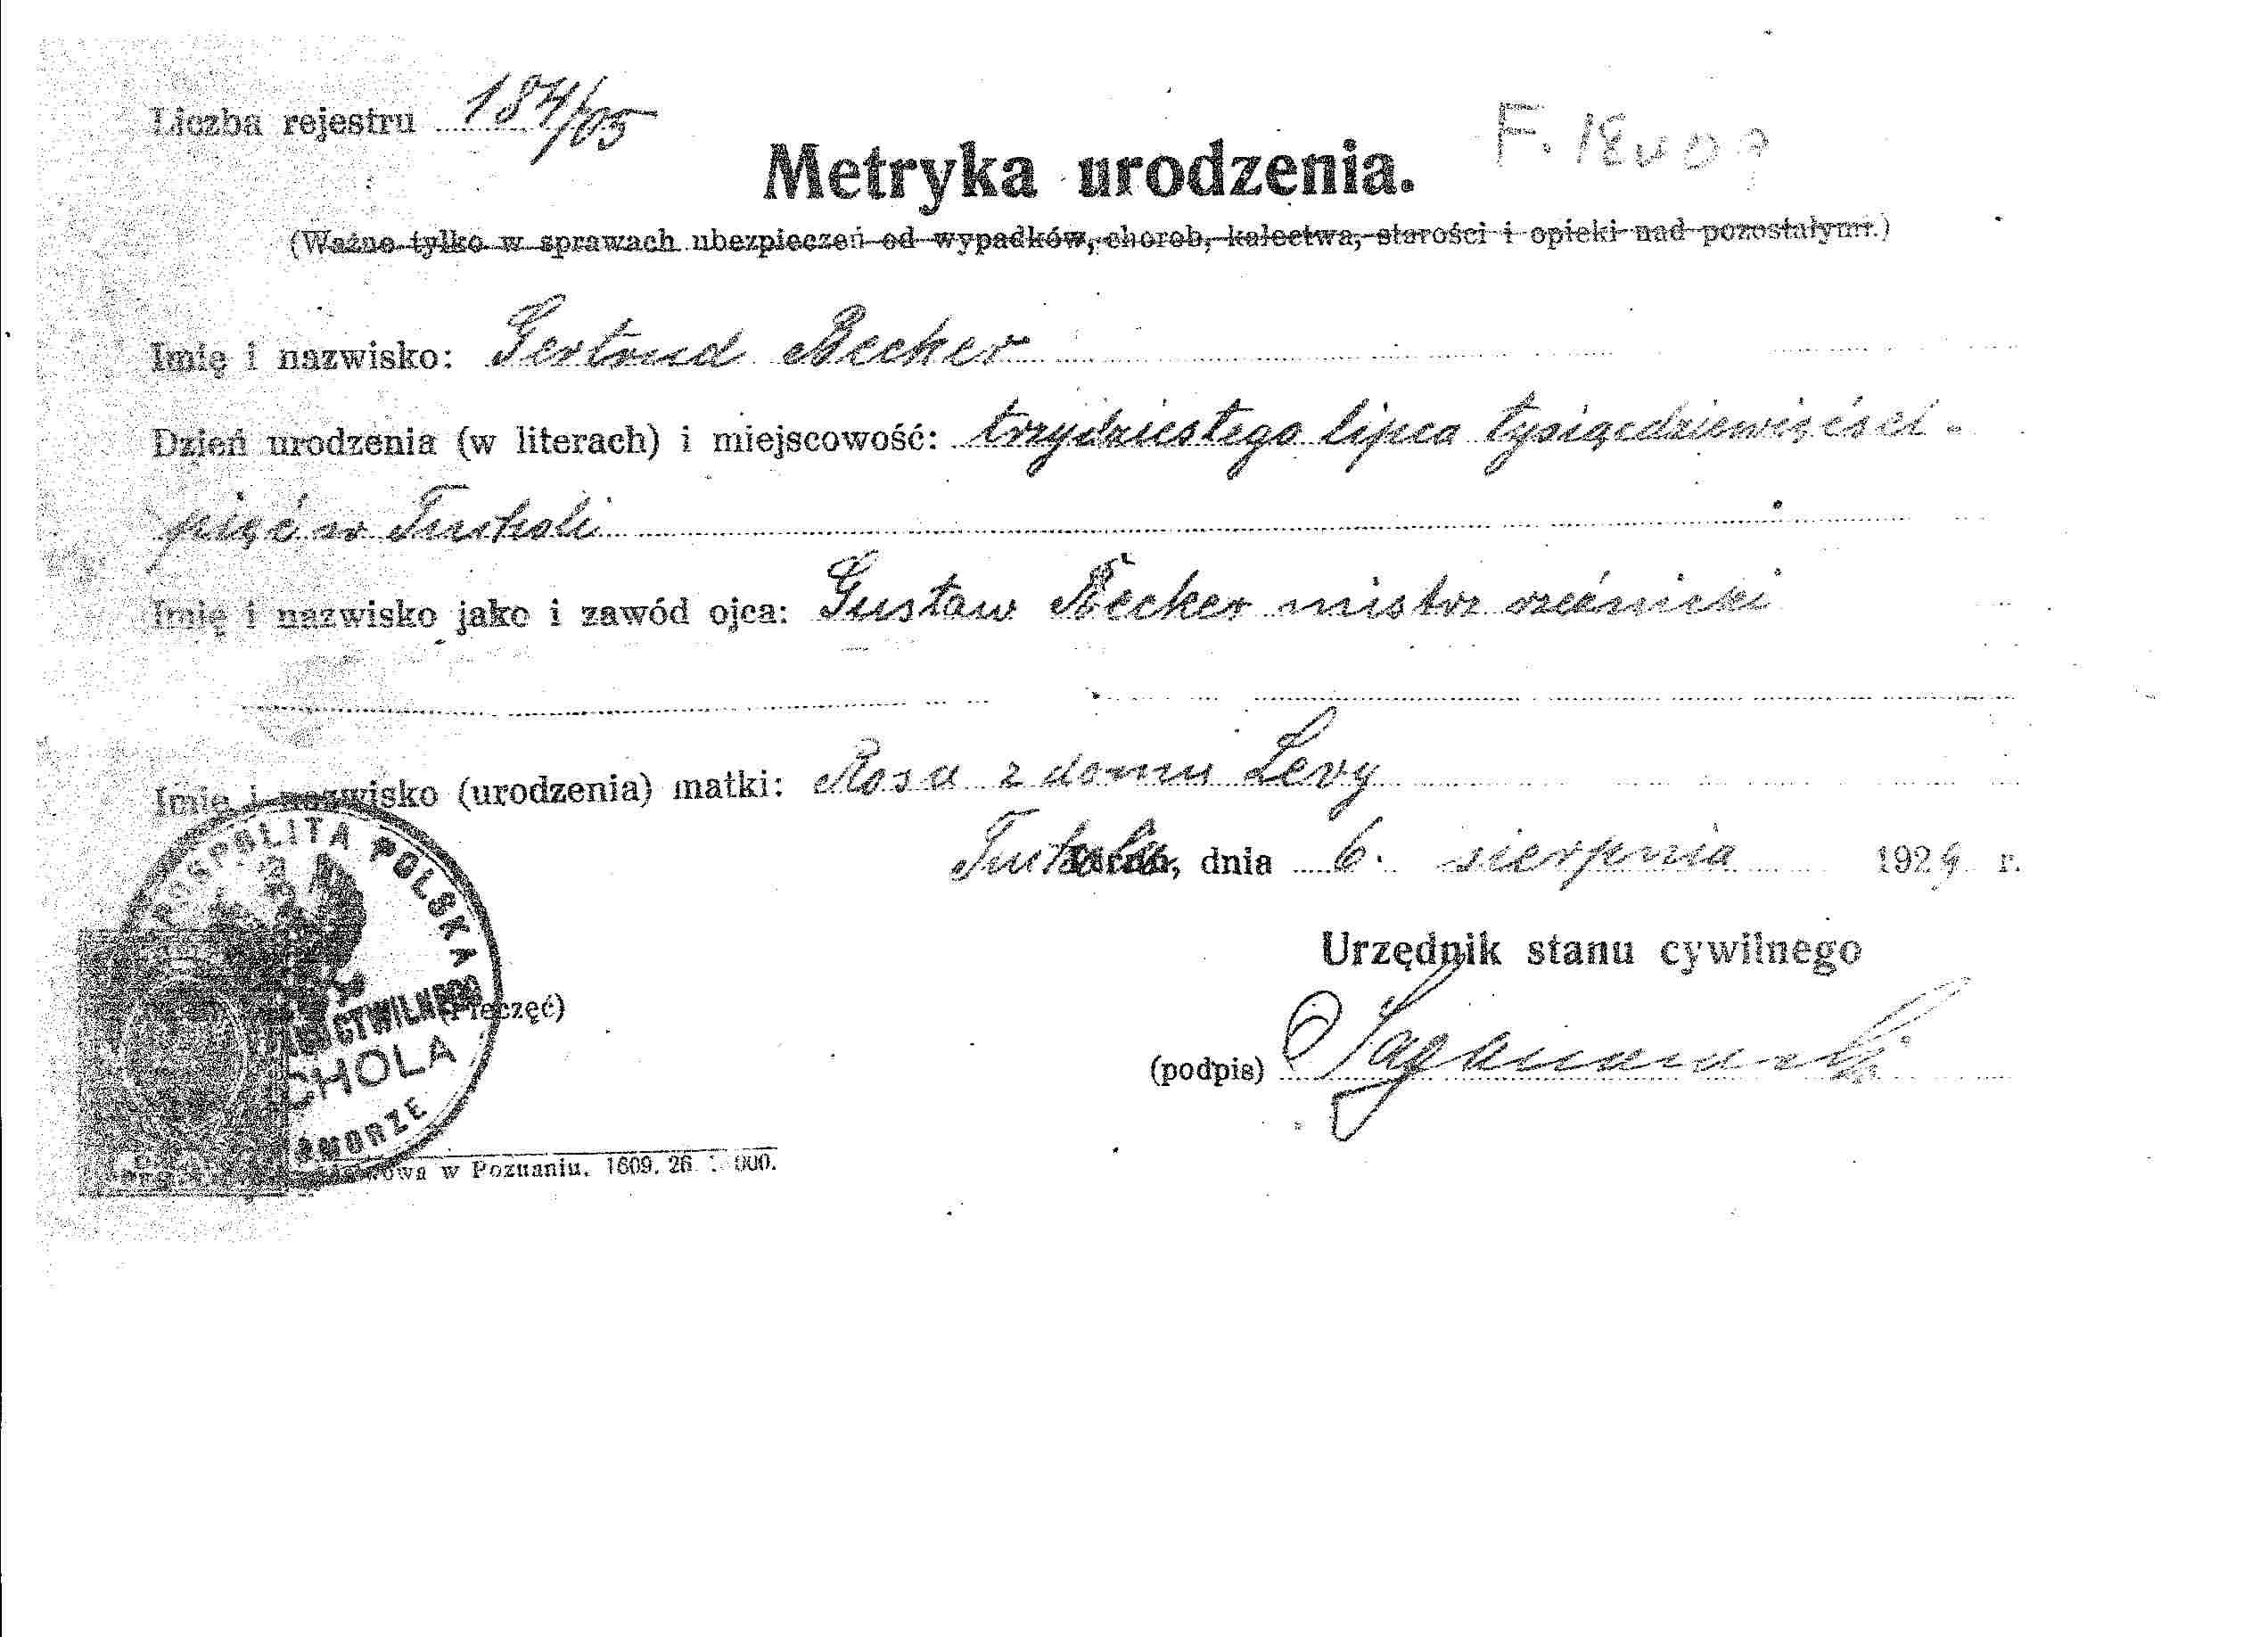 Liczba rejestru 184/05
Metryka urodzenia.
(Ważne tylko w sprawach ubezpieczeń od wypadków, chorob, kalectwa, starości i opieki nad pozostałymi.)
Imię i nazwisko: Gertrud Becker
Dzień urodzenia (w literach) i miejscowość: trzydziestego lipca tysiącdziewięćset-
pięć w Tucholi
Imię i nazwisko jako i zawód ojca: Gustaw Becker mistrz rzeźnicki
Imię i nazwisko (urodzenia) matki: Rosa z domu Levy
Tuchola, dnia 6. sierpnia 1929 r.
Urzędnik stanu cywilnego
(Pieczęć)
POSPOLITA POLSKA
CYWILNEGO
CHOLA
POMORZE
(podpis)
w Poznaniu. 1609. 26.